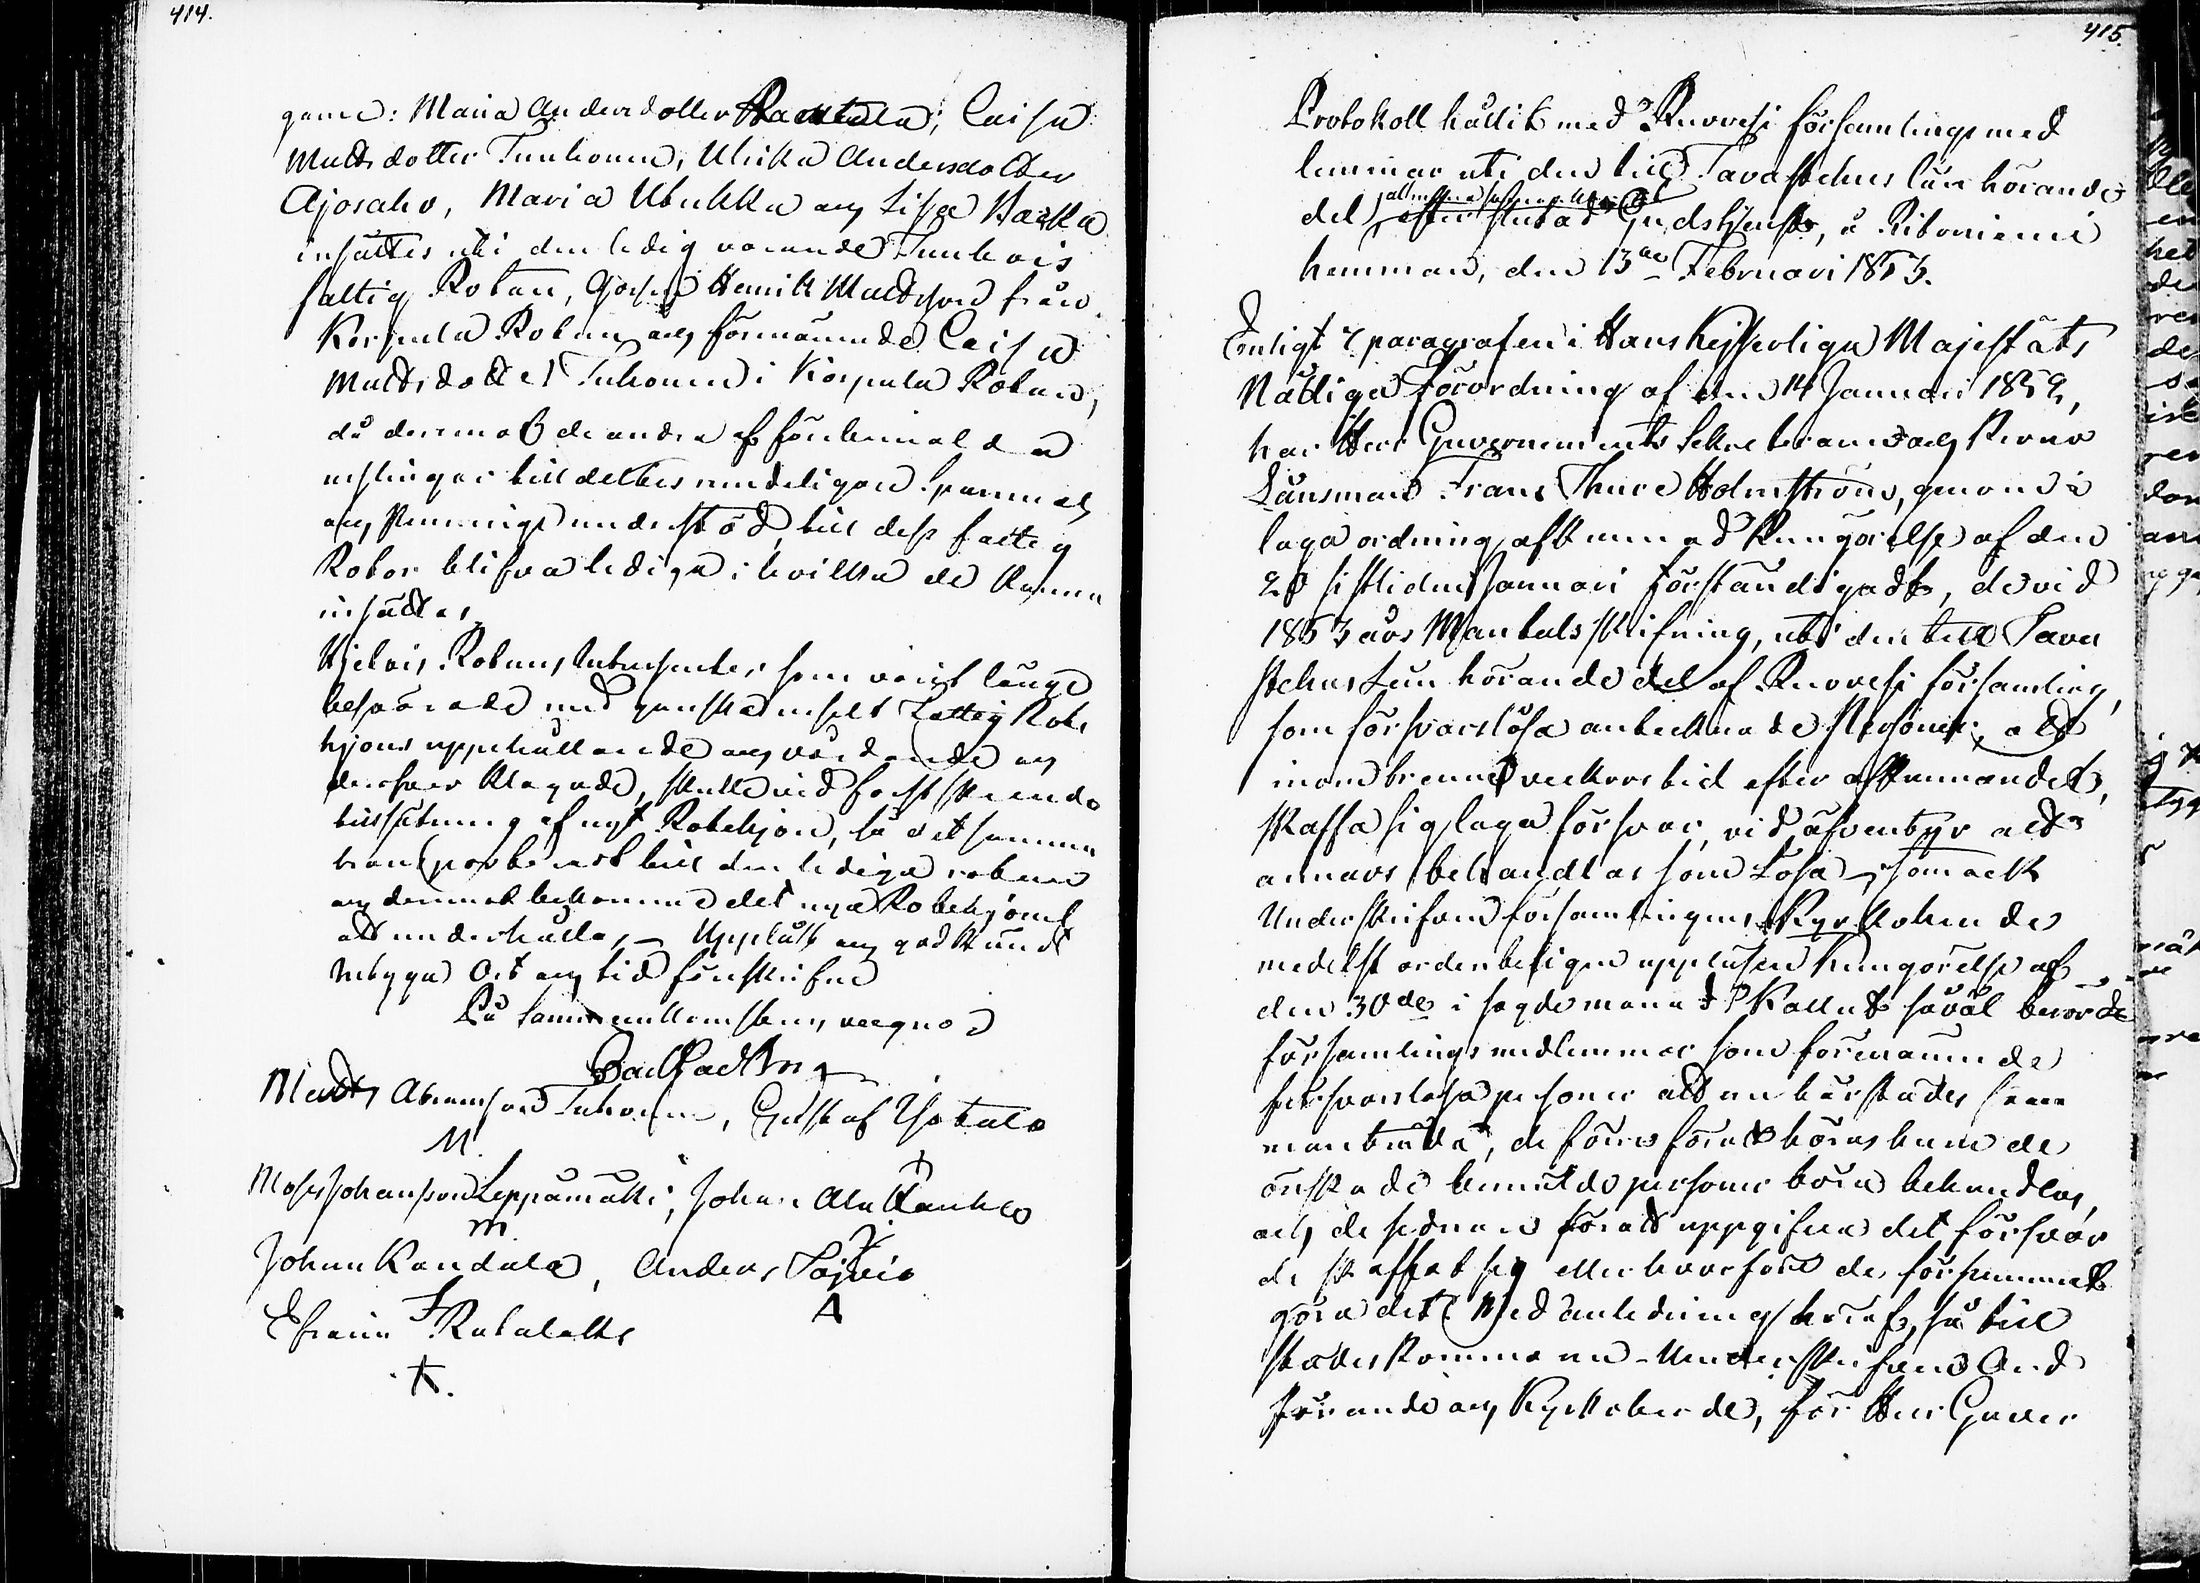 414.
game: Maria Andersdotter Rantala, Caisa
Mattsdotter Tuuhonen, Ulrika Andersdotter
Ajosaho, Maria Ubukka och Lisa Harkka
insättes uti den ledig varande Tunkois
fattig Rotan, Henrik Mattsson från
Korpula Rotan och förenämnde Caisa
Mattsdotter Tuhonen i Korpula Rotan,
då deremot de andra af förutenämalda
ustlingar tilldeltes nundeligen Spannmals
och Pennings understöd, till dess fattig
Rotor blifva lediga i hvilka de kunna
insättas,
Kjelois Rotans som varit länge
besvärade med ganska uselt Fattig Rote
hjons uppehållande och vårdande och
deröfver klagade, skulle vid först skeende
tillsättning af nytt Rotehjon, få detsamma
transporterat till den lediga rotan
och deremot bekomma det nya Rotehjonet
att underhålla, – Uppläst och godkändt
intygar Ort och tid förutskrifne
På Sammankomstens vägnar
Matts Abramsson Tuhonen, Gustaf Ysotalo
M.
Moses Johansson Leppämäki, Johan Ala
m.
Johan Randala, Anders
Efraim Rabalatti
415.
Protokoll hållit med Ruovesi församlings med
lemmar uti den till Tavastehus län hörande
del, efter slutad Gudstjenst, å Ritoniemi
hemman, den 13de Februari 1853.
Enligt 4 paragrafen i Hans Kejserliga Majestäts
Nådiga Förordning af den 14 Januari 1852,
har Herr Guvernements Sekreteraren och Krono
Länsman Frans Thure Holmström, genom i
laga ordning afkunnad Kungörelse af den
20 sistlidne Januari förständigadt, de vid
1853 års Mantals skrifning, uti den till Tava
stehus Län hörande del af Ruovesi församling,
som försvarslösa antecknade Personer, att
inom trenne veckors tid efter afkunnandet,
skaffa sig laga försvar, vid äfventyr att
annars behandlas som Lösa, – som ock
Underskrifven församlingens Kyrkoherde
medelst ordenteligen uppläsen Kungörelse af
den 30de i sagde månad Kallat såväl berörde
församlings medlemmar som förenämnde
försvarslösa personer att nu härstädes sam
manträda, de förre för att höras huru de
önskade benämnde personer böra behandlas,
och de sednare för att uppgifva det försvar
de skaffat sig eller hvarföre de försummat
göra det. Med anledning häraf, så till
städes komma nu – Underskrifven Ord
förande och Kyrkoherde, för Herr Guver